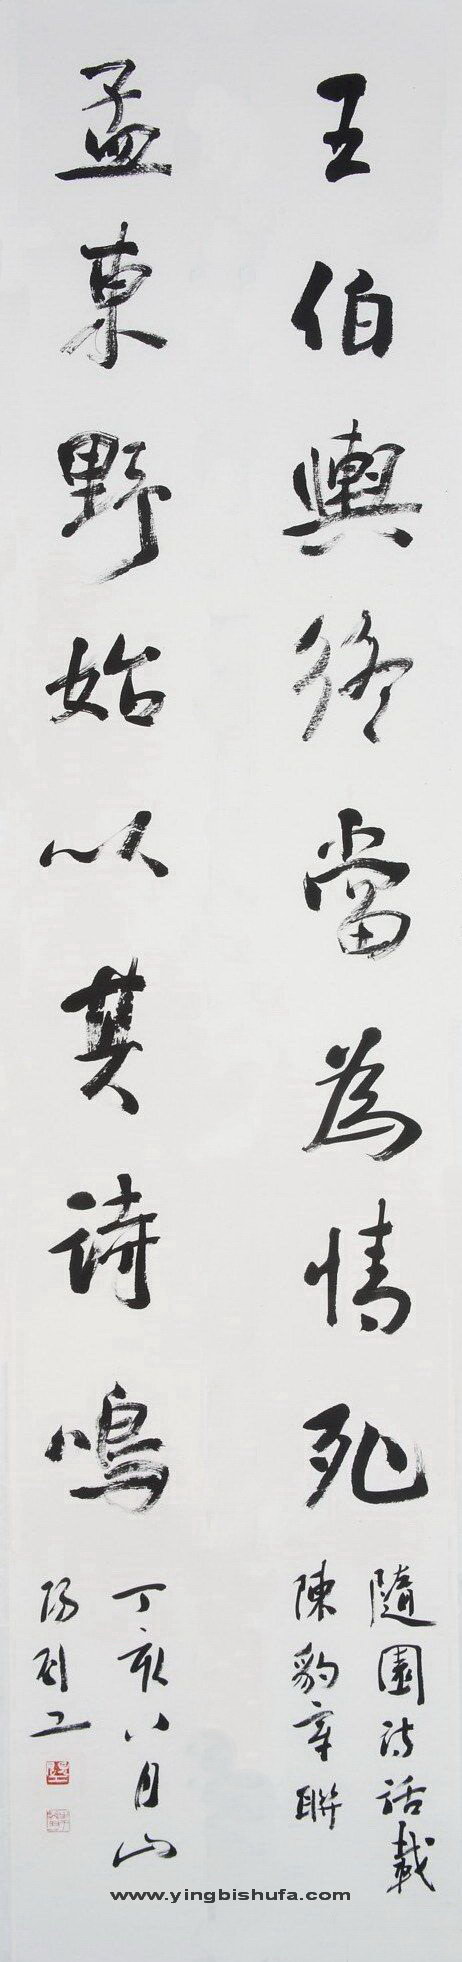 王伯輿終當為情死
隨園詩話載
陳豹章聯
孟東野始以其詩鳴
丁亥八月山
陽剳工
www.yingbishufa.com